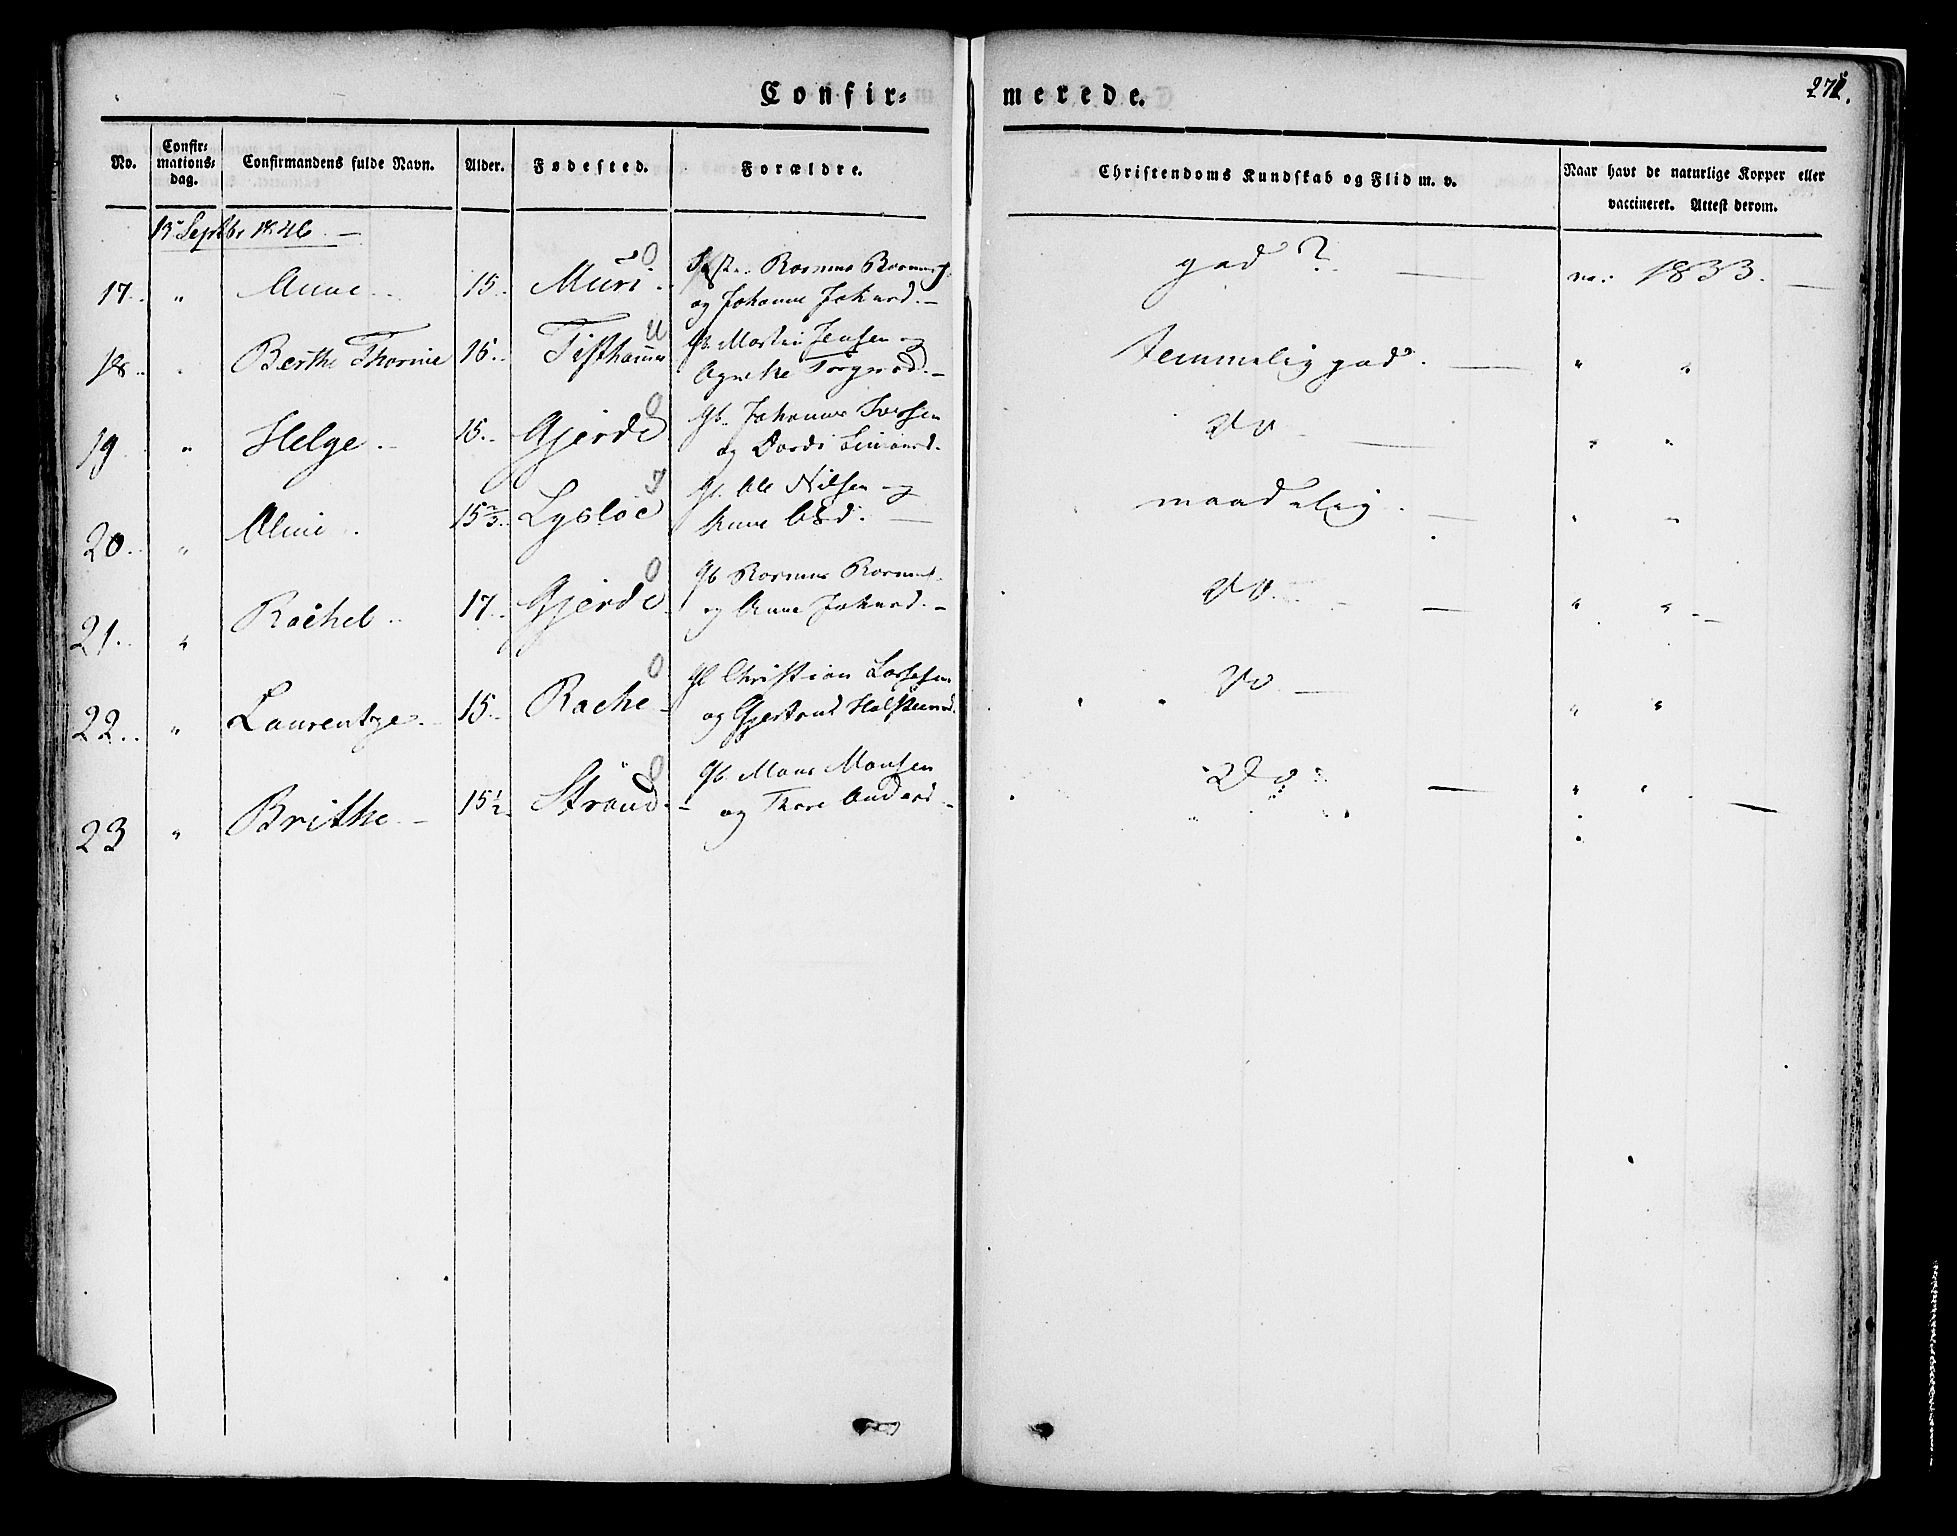 Confir= merede. 271.
No. Confir= mations= dag. Confirmandens fulde Navn. Alder. Fødested. Forældre. Christendoms Kundskab og Flid m. v. Naar havt de naturlige Kopper eller vaccineret. Attest derom.
13 Septbr 1846. —
17. " Anne 15. Muri. O Rasmus og Johanne god? — va: 1833. —
18. . Berthe Thorine 16. Tisthamr U Gb. Martin Jensen og Agnethe temmelig god. — " "
19 " Helge. 15. Gjerde O Gb. Johannes Iversen og Dorde Do — " "
20. " Oline. 15 2/3. Lysloe O Gb. Ole Nilsen og Anne Olsd. — maadelig. — " "
21. " Rachel 17. Gjerde O Gb Rasmus og Anne Do. — " " —
22. " Laurentze. 15. Rache O Gb Christian og Gjertrud Do — " "
23 " Brithe. — 15 1/2. Strand. O Gb. Mons Monsen og Thore Do — " " —